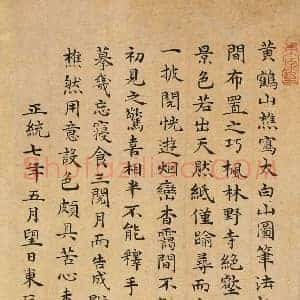 黃鶴山樵寫太白山圖筆法
間布置之巧楓林野寺絕壑
景色若出天然紙僅踰尋而
一披閱恍遊烟巒杳靄間不
初見之驚喜相半不能釋手
摹幾忘寢食閱月而告成雖
樵然用意設色頗具苦心
正統七年五月望日東